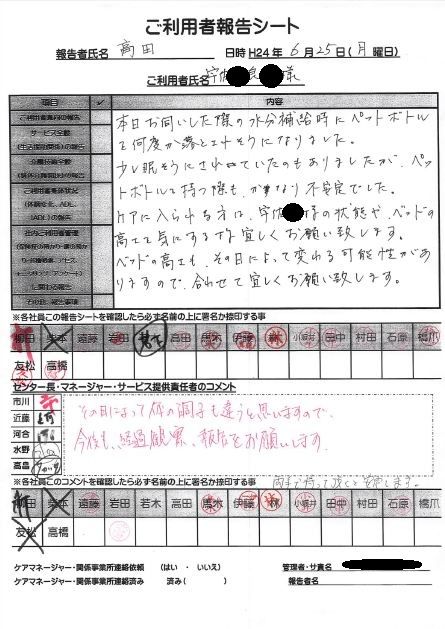 ご利用者報告シート
報告者氏名 高田 日時 H24年 6月25日(月曜日)
ご利用者氏名 様
項目 ✓ 内容
ご利用者業務の報告
サービス全般
本日お伺いした際の水分補給時にペットボトル
を何度か落とされそうになりました。
少し眠そうにされていたのもありましたが、ペッ
トボトルを持つ際も、かなり不安定でした。
ケアに入られる方は、様の状態や、ベッドの
高さを気にする様宜しくお願い致します。
ベッドの高さも、その日によって変わる可能性があ
りますので、合わせて宜しくお願い致します。
※各社員この報告シートを確認したら必ず名前の上に署名か捺印する事
柳田 柴本 遠藤 岩田 若木 高田 馬木 伊藤 林 小坂井 田中 村田 石原 橋爪
友松 高橋
センター長・マネージャー・サービス提供責任者のコメント
市川
近藤
河合
水野
高畠
その日によって体の調子も違うと思いますので、
今後も、経過観察、報告をお願いします。
※各社員このコメントを確認したら必ず名前の上に署名か捺印する事
柴本 遠藤 岩田 若木 高田 馬木 伊藤 林 小坂井 田中 村田 石原 橋爪
友松 高橋
ケアマネージャー・関係事業所連絡依頼 (はい ・ いいえ) 管理者・サ責名
ケアマネージャー・関係事業所連絡済み 済み( ) 報告者名